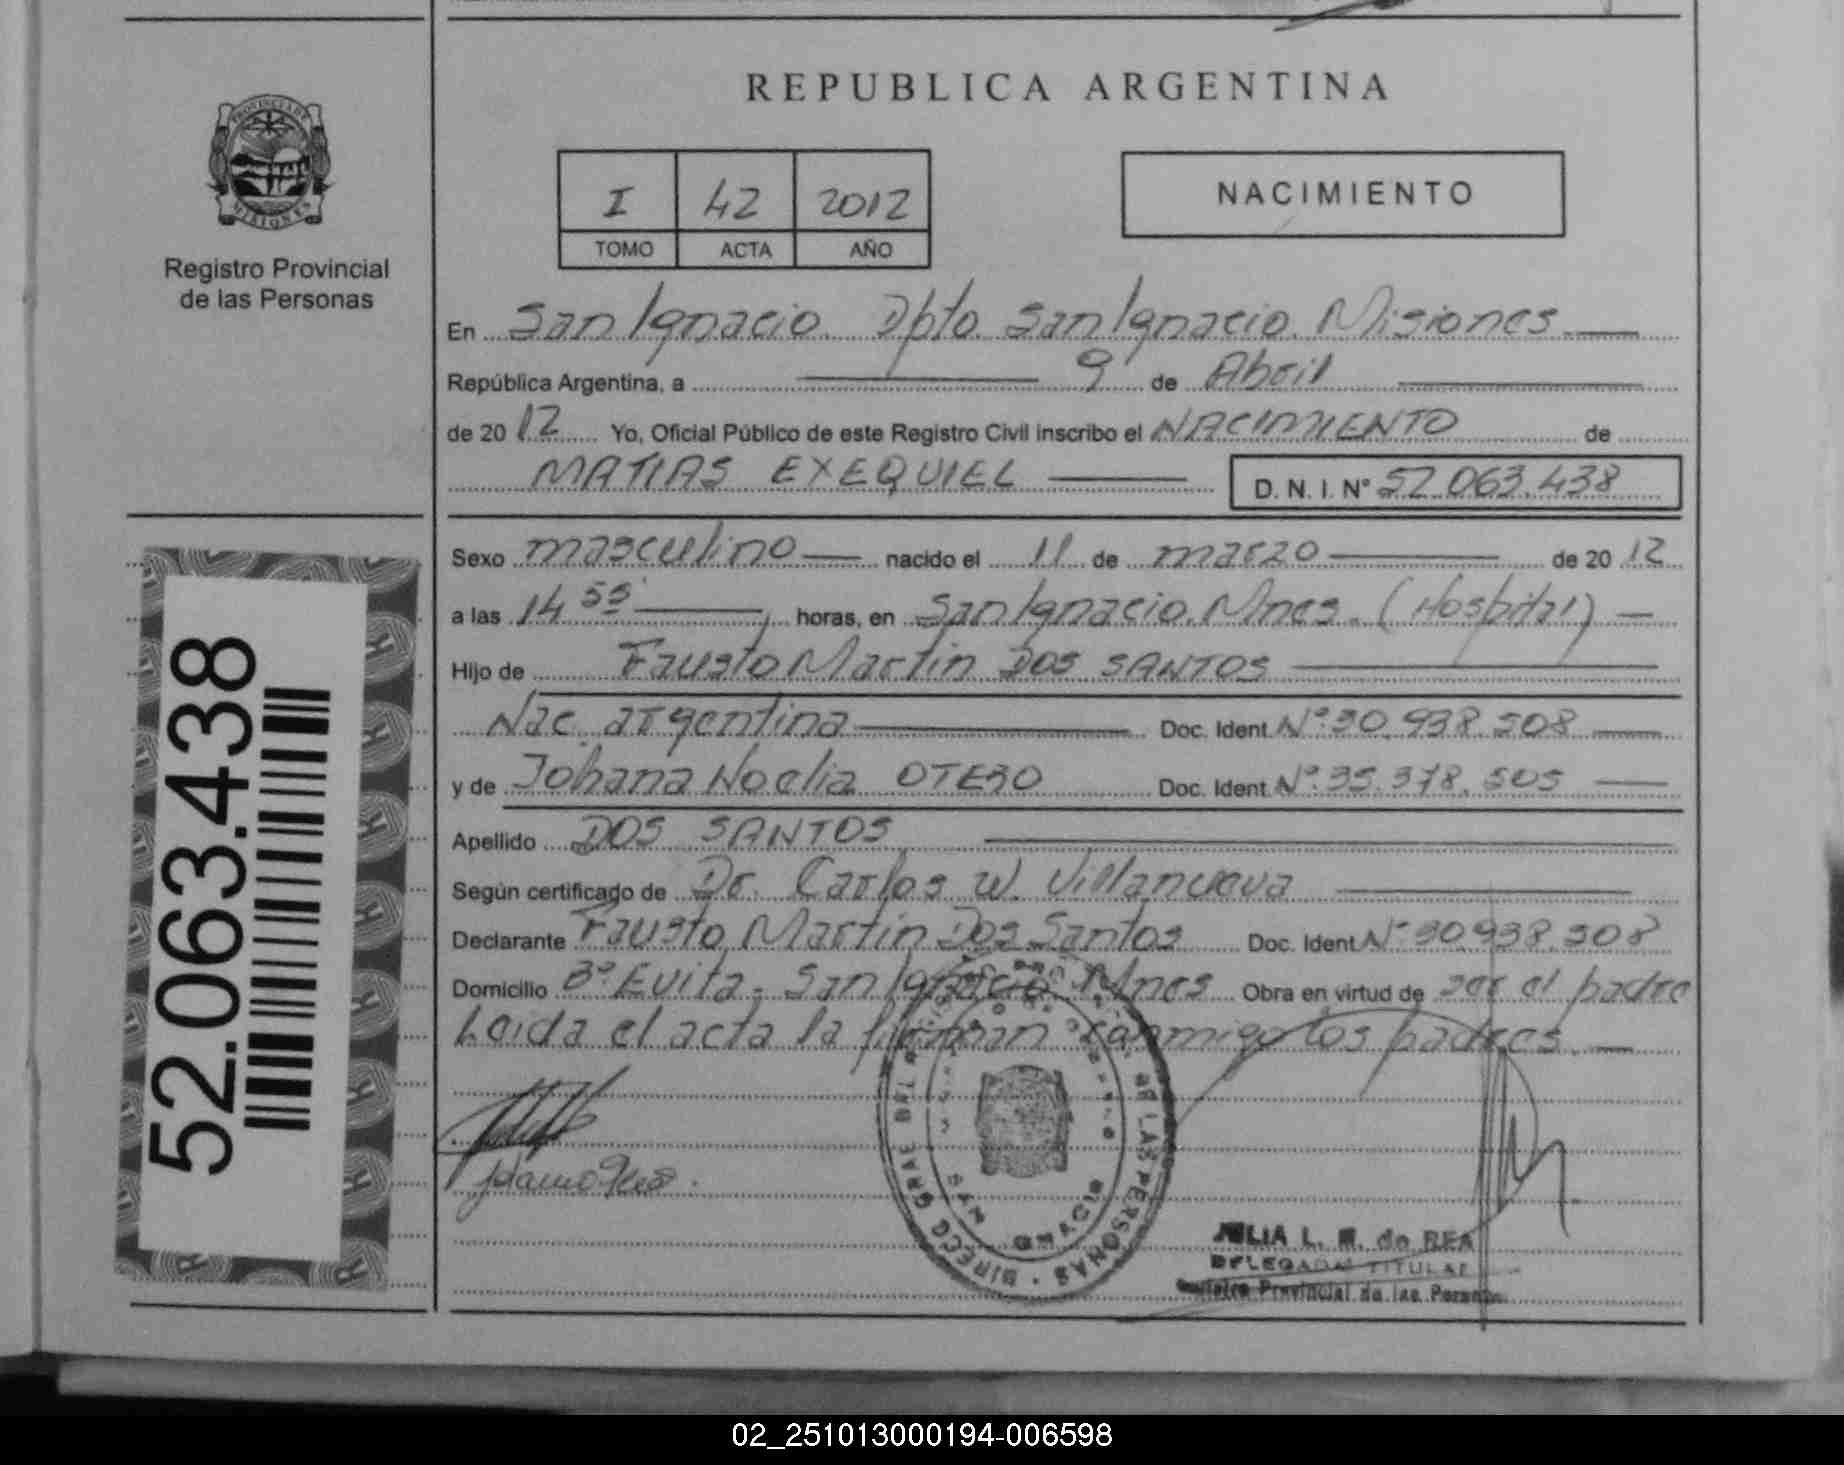 REPUBLICA ARGENTINA
PROVINCIA DE
MISIONES
Registro Provincial
de las Personas
I 42 2012
TOMO ACTA AÑO
NACIMIENTO
En San Ignacio Dpto. San Ignacio. Misiones
República Argentina, a 9 de Abril
de 2012 Yo, Oficial Público de este Registro Civil inscribo el NACIMIENTO de
MATIAS EXEQUIEL D.N.I. N° 52.063.438
Sexo masculino nacido el 11 de marzo de 2012
a las 14 55 horas, en San Ignacio. Mnes. (Hospital)
Hijo de Fausto Martin DOS SANTOS
Nac. argentina Doc. Ident. N° 30.938.508
y de Johana Noelia OTERO Doc. Ident. N° 35.378.505
Apellido DOS SANTOS
Según certificado de Dr. Carlos W. Villanueva
Declarante Fausto Martin Dos Santos Doc. Ident. N° 30.938.508
Domicilio B° Evita. San Ignacio Mnes Obra en virtud de ser el padre
Leida el acta la firman conmigo los padres.
52.063.438
DIRECC GRAL DEL DE LAS PERSONAS
SAN IGNACIO
JULIA L. M. de REA
DELEGADA TITULAR
Registro Provincial de las Personas
02_251013000194-006598